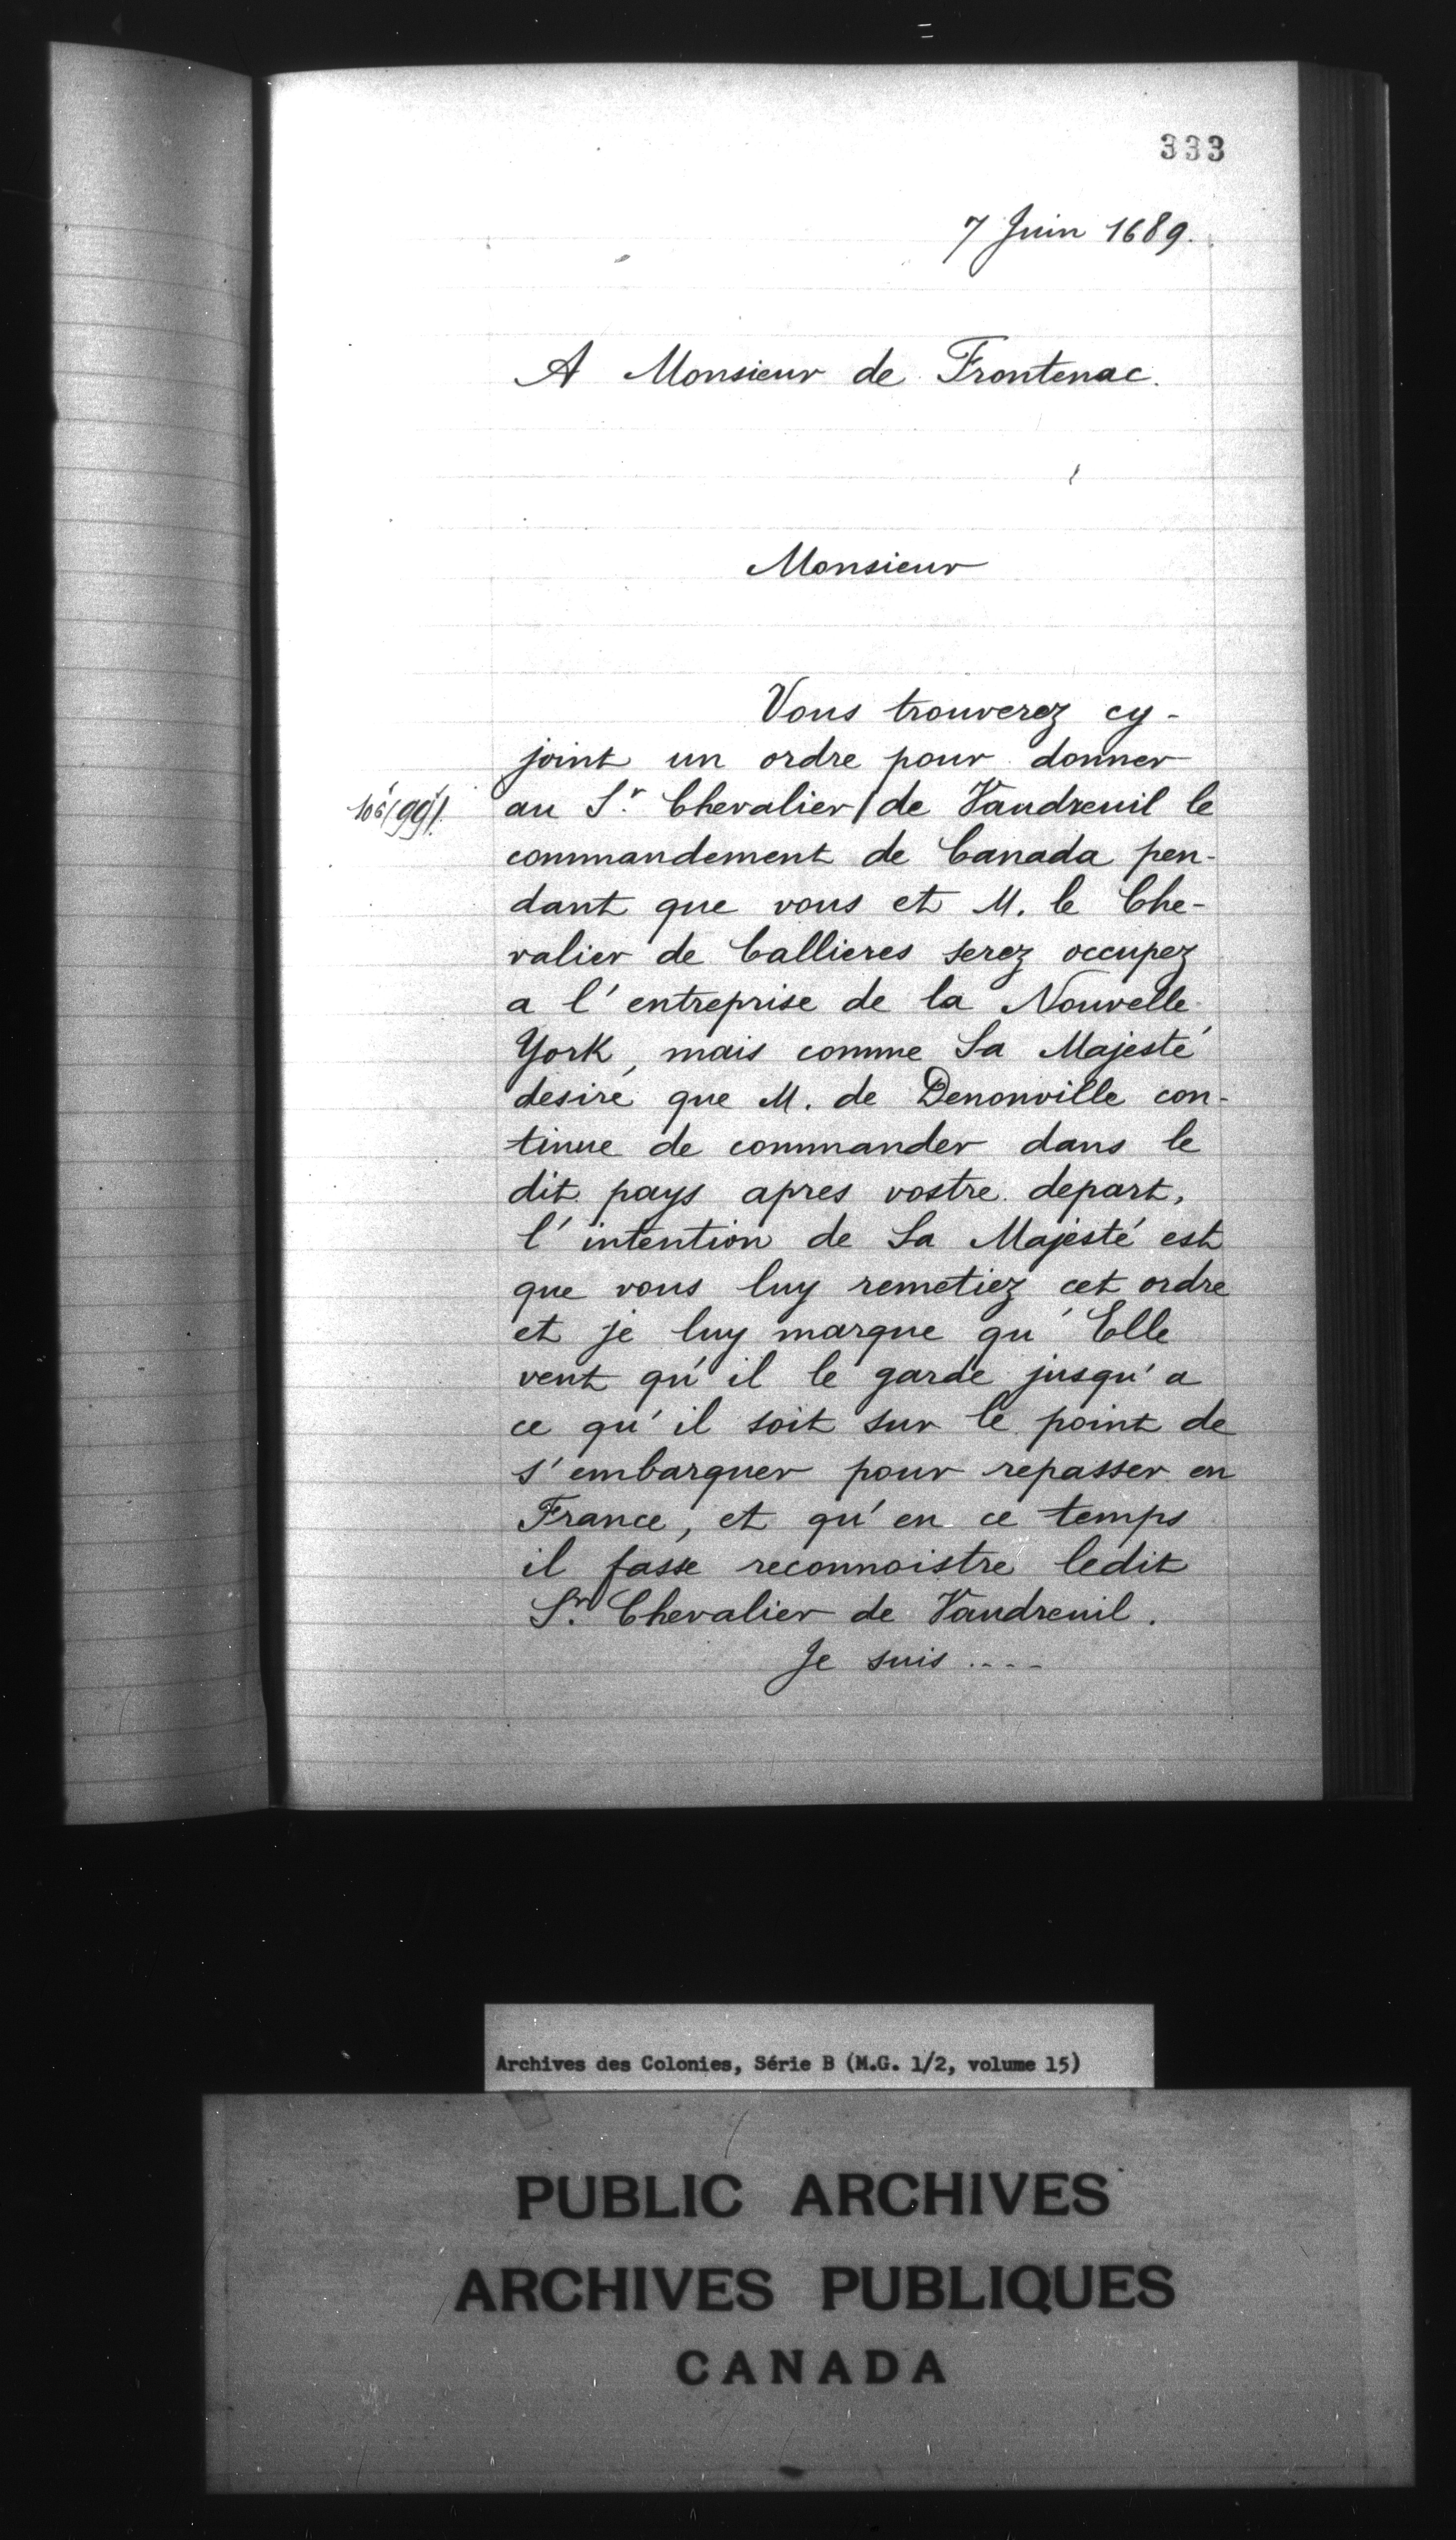 333
7 Juin 1689.
A Monsieur de Frontenac.
Monsieur
Vous trouverez cy-
joint un ordre pour donner
au Sr. Chevalier/de Vaudreuil le
commandement de Canada pen-
dant que vous et M. le Che-
valier de Callieres serez occupez
a l'entreprise de la Nouvelle
York, mais comme Sa Majesté
desire que M. de Denonville con-
tinue de commander dans le
dit pays apres vostre depart,
l'intention de Sa Majesté est
que vous luy remetiez cet ordre
et je luy marque qu'Elle
veut qu'il le garde jusqu'a
ce qu'il soit sur le point de
s'embarquer pour repasser en
France, et qu'en ce temps
il fasse reconnoistre ledit
Sr. Chevalier de Vaudreuil.
Je suis ....
Archives des Colonies, Série B (M.G. 1/2, volume 15)
PUBLIC ARCHIVES
ARCHIVES PUBLIQUES
CANADA